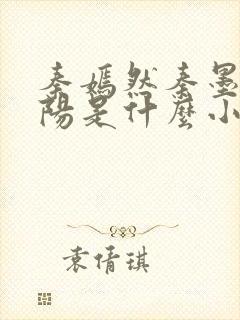 秦嫣然秦墨
陽是什麼小
袁倩琪